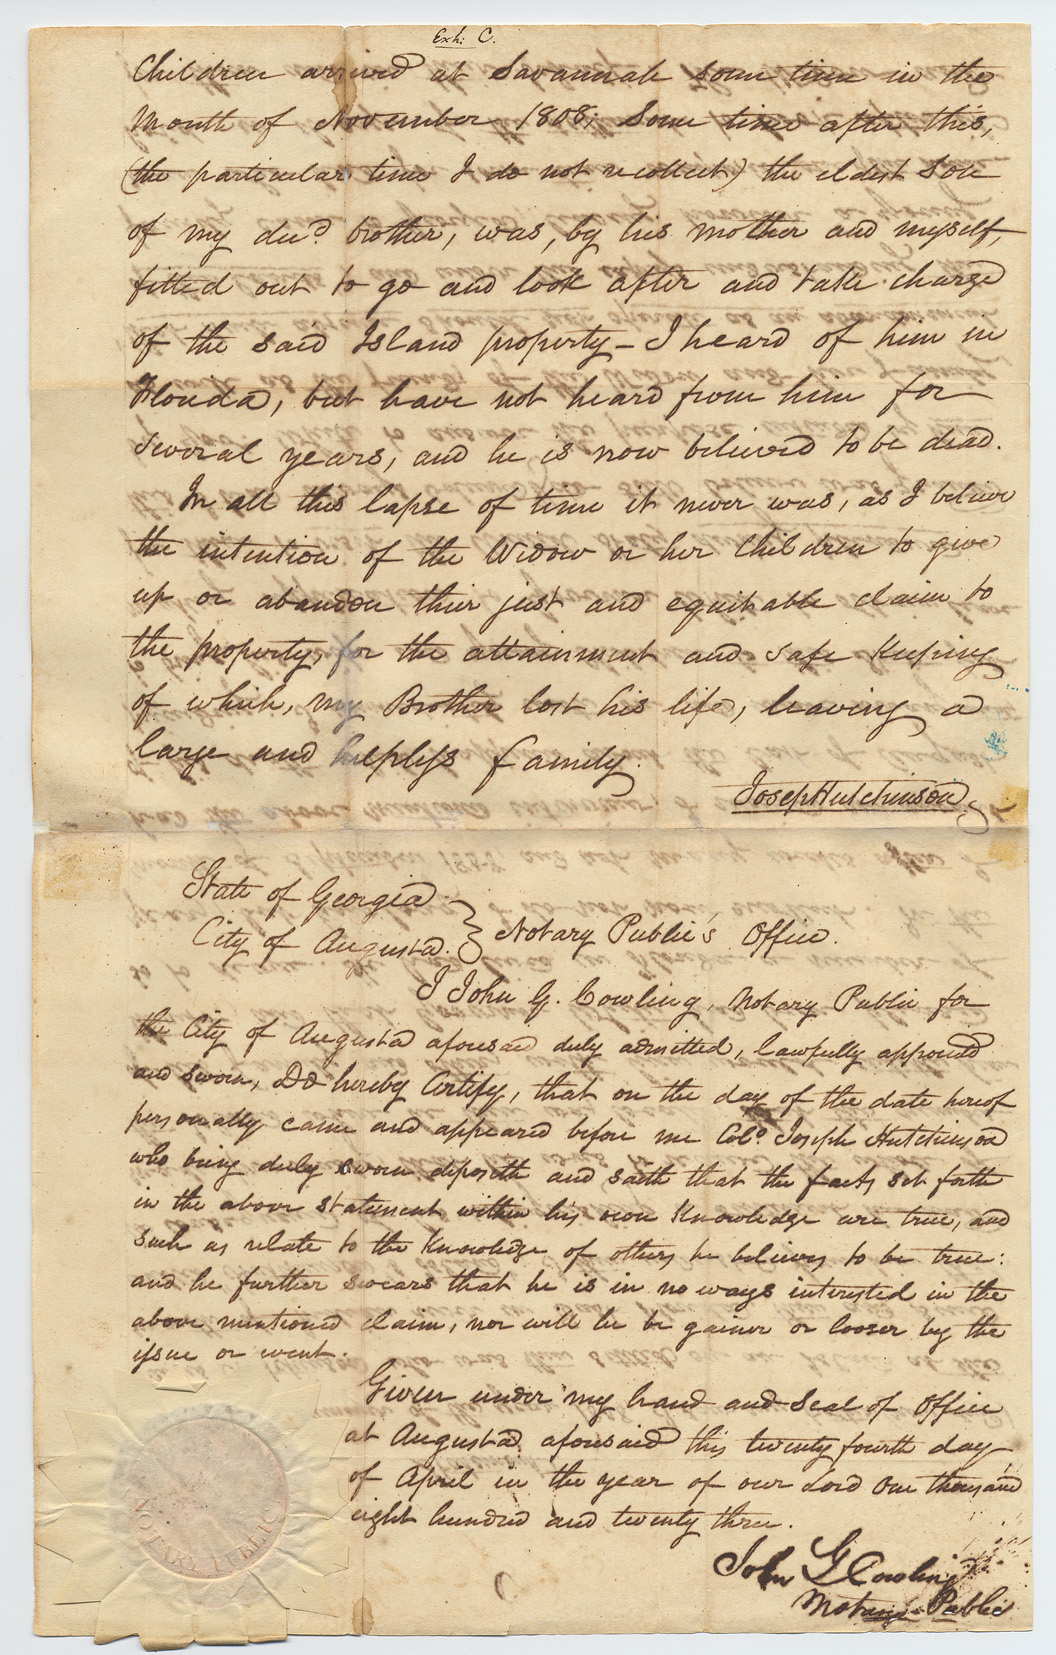 Exh: C.
Children arrived at Savannah some time in the
Month of November 1808; Some time after this,
(the particular time I do not recollect) the eldest Son
of my decd. brother, was, by his mother and myself,
fitted out to go and look after and take charge
of the said Island property – I heard of him in
Florida, but have not heard from him for
several years, and he is now believed to be dead.
In all this lapse of time it never was, as I believe
the intention of the Widow or her Children to give
up or abandon their just and equitable claim to
the property, for the attainment and safe keeping
of which, my Brother lost his life, leaving a
large and helpless family.
Joseph Hutchinson
State of Georgia
City of Augusta } Notary Public's Office.
I John G. Cowling, Notary Public for
the City of Augusta aforesaid duly admitted, lawfully appointed
and sworn, Do hereby Certify, that on the day of the date hereof
personally came and appeared before me Colo. Joseph Hutchinson
who being duly sworn deposeth and saith that the facts set forth
in the above statement within his own knowledge are true, and
such as relate to the knowledge of others he believes to be true:
and he further swears that he is in no ways interested in the
above mentioned claim, nor will he be gainer or looser by the
issue or event.
Given under my hand and Seal of office
at Augusta aforesaid this twenty fourth day
of April in the year of our Lord One thousand
eight hundred and twenty three.
John G Cowling
Notary Public
NOTARY PUBLIC